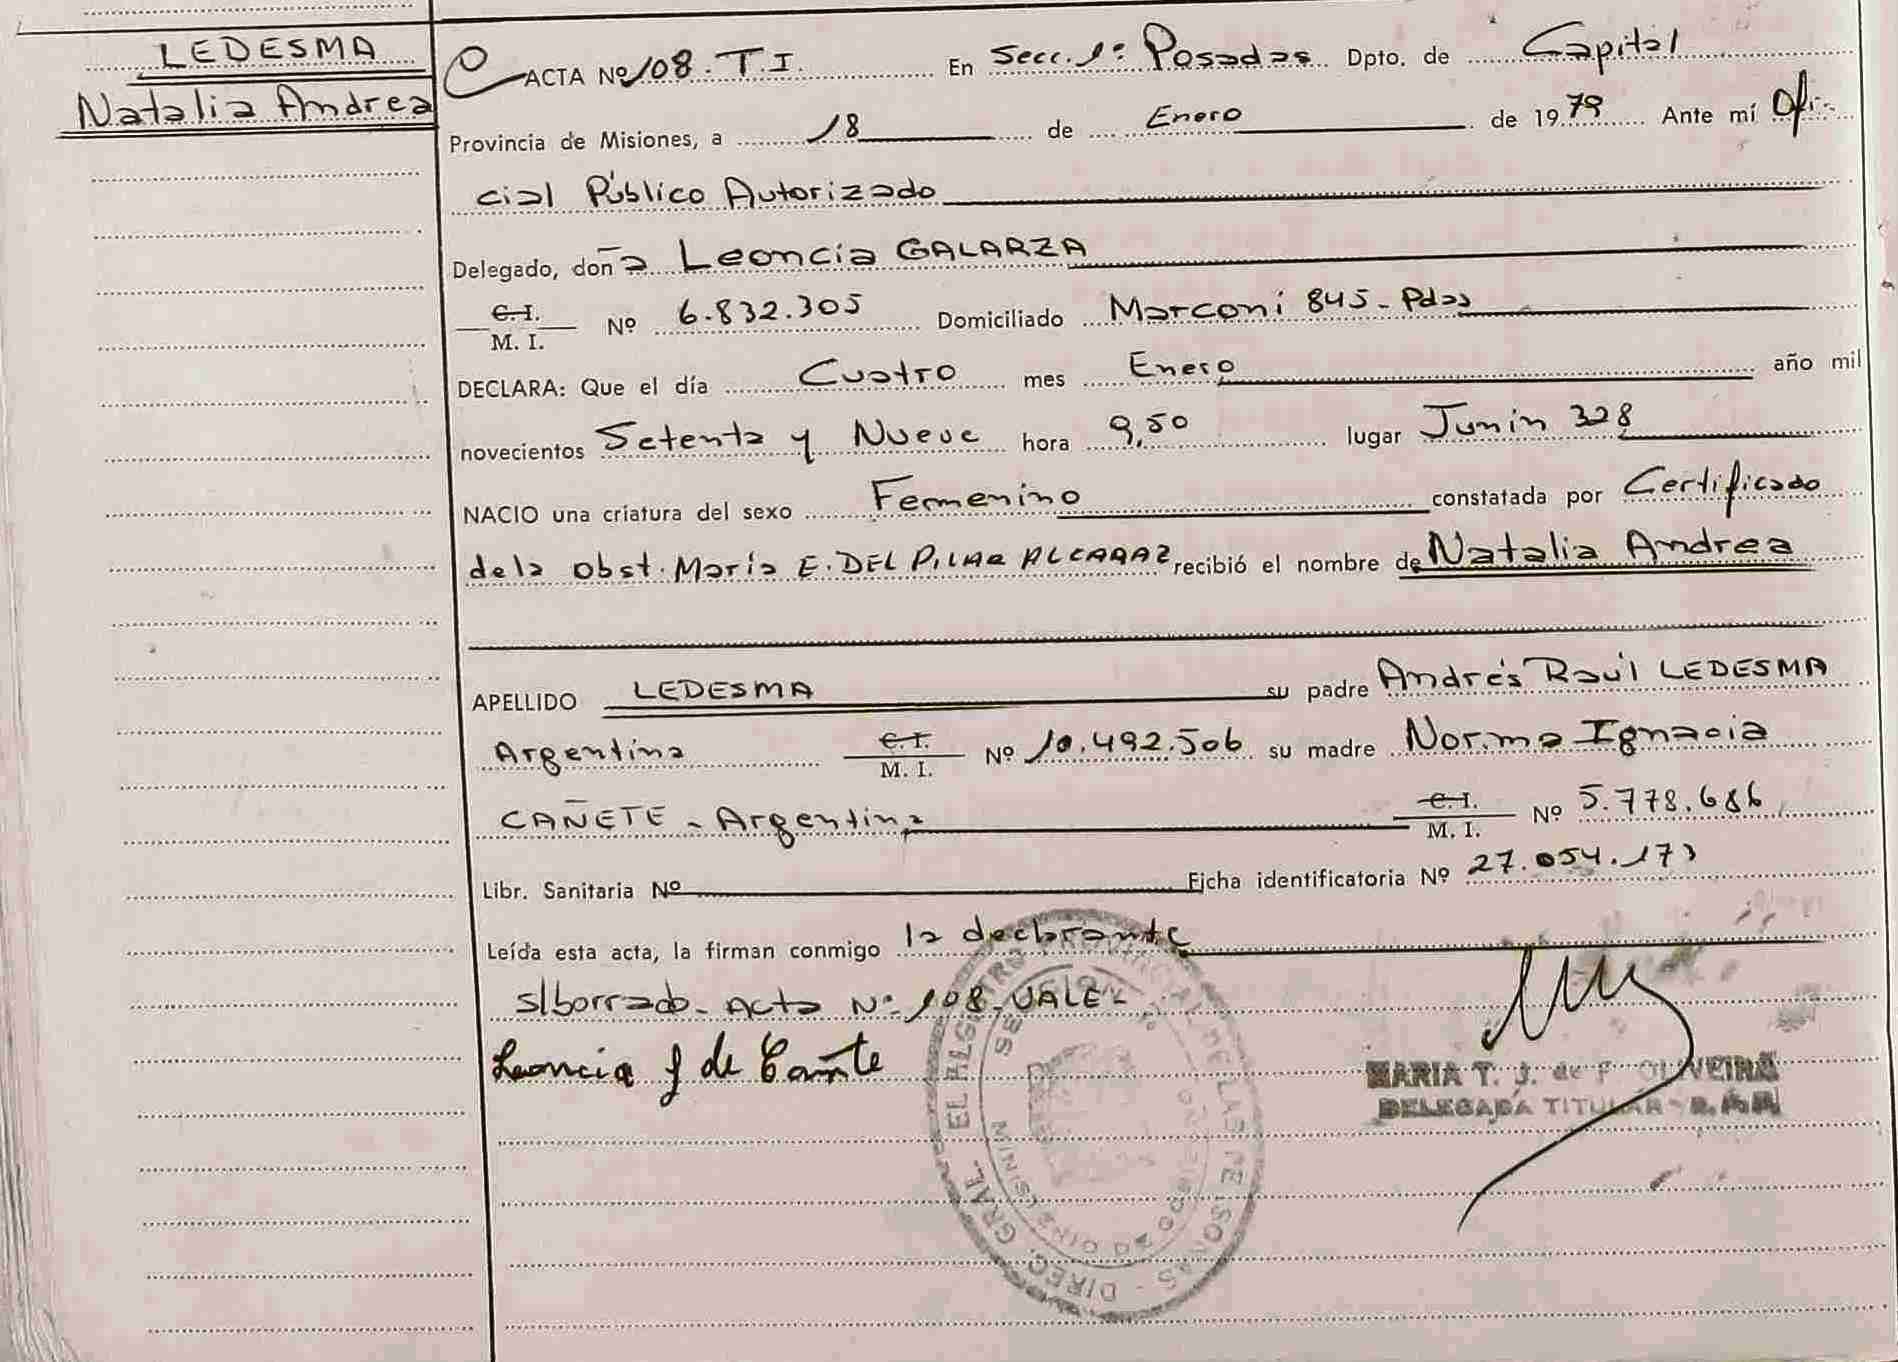 LEDESMA
Natalia Andrea
ACTA Nº 108. T.I. En Secc. 1ª Posadas Dpto. de Capital
Provincia de Misiones, a 18 de Enero de 1979 Ante mí Ofi-
cial Público Autorizado
Delegado, doña Leoncia GALARZA
C.I.
M. I. Nº 6.832.305 Domiciliado Marconi 845 - Pdas
DECLARA: Que el día Cuatro mes Enero año mil
novecientos Setenta y Nueve hora 9,50 lugar Junin 328
NACIO una criatura del sexo Femenino constatada por Certificado
de la Obst. María E. DEL PILAR ALCARAZ recibió el nombre de Natalia Andrea
APELLIDO LEDESMA su padre Andrés Raúl LEDESMA
Argentino C.I. M. I. Nº 10.492.506 su madre Norma Ignacia
CAÑETE - Argentina C.I. M. I. Nº 5.778.686
Libr. Sanitaria Nº Ficha identificatoria Nº 27.054.173
Leída esta acta, la firman conmigo la declarante
s/borrado - Acta Nº 108 - VALE -
Leoncia G de Cañete
MARIA T. J. de F. OLIVEIRA
DELEGADA TITULAR